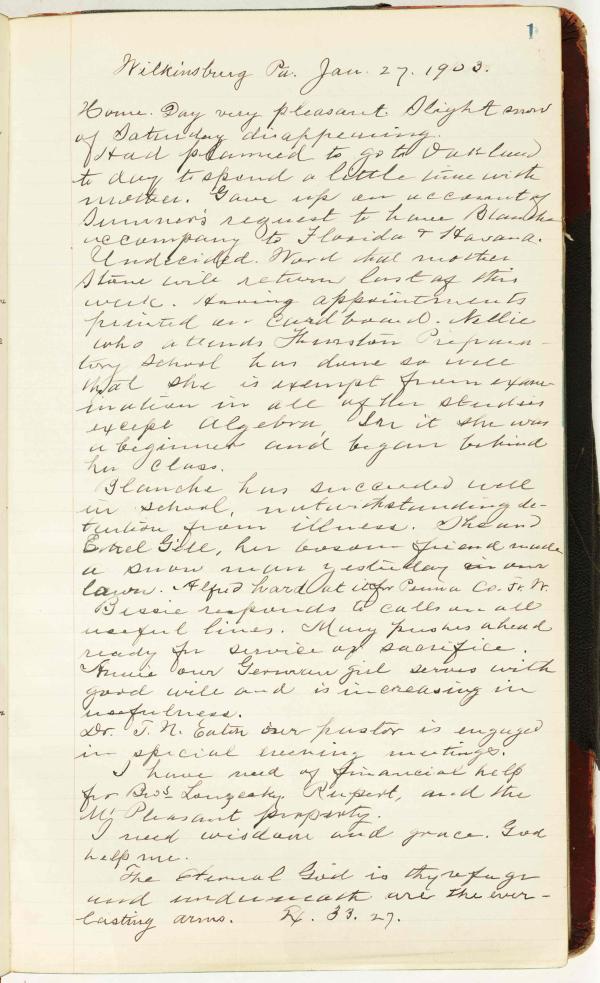 1
Wilkinsburg Pa. Jan. 27. 1903.
Home. Day very pleasant. Slight snow
of Saturday disappearing.
Had planned to go to Oakland
to day to spend a little time with
mother. Gave up on account of
Sumner's request to have Blanche
accompany to Florida & Havana.
Undecided. Word that mother
Stone will return last of this
week. Having appointments
printed on cardboard. Nellie
who attends Thurston Prepara-
tory School has done so well
that she is exempt from exam-
ination in all of her studies
except Algebra, In it she was
a beginner and began behind
her class.
Blanche has succeeded well
in school, notwithstanding de-
tention from illness. She and
Ethel Gill, her bosom friend made
a snow man yesterday in our
lawn. Alfred hard at it for Penna Co. Ft. W.
Bessie responds to calls on all
useful lines. Mary pushes ahead
ready for service or sacrifice.
Annie our German girl serves with
good will and is increasing in
usefulness.
Dr. T. N. Eaton our pastor is engaged
in special evening meetings.
I have need of financial help
for Bros Rupert, and the
Mt Pleasant property.
I need wisdom and grace. God
help me.
The Eternal God is thy refuge
and underneath are the ever-
lasting arms. 33. 27.